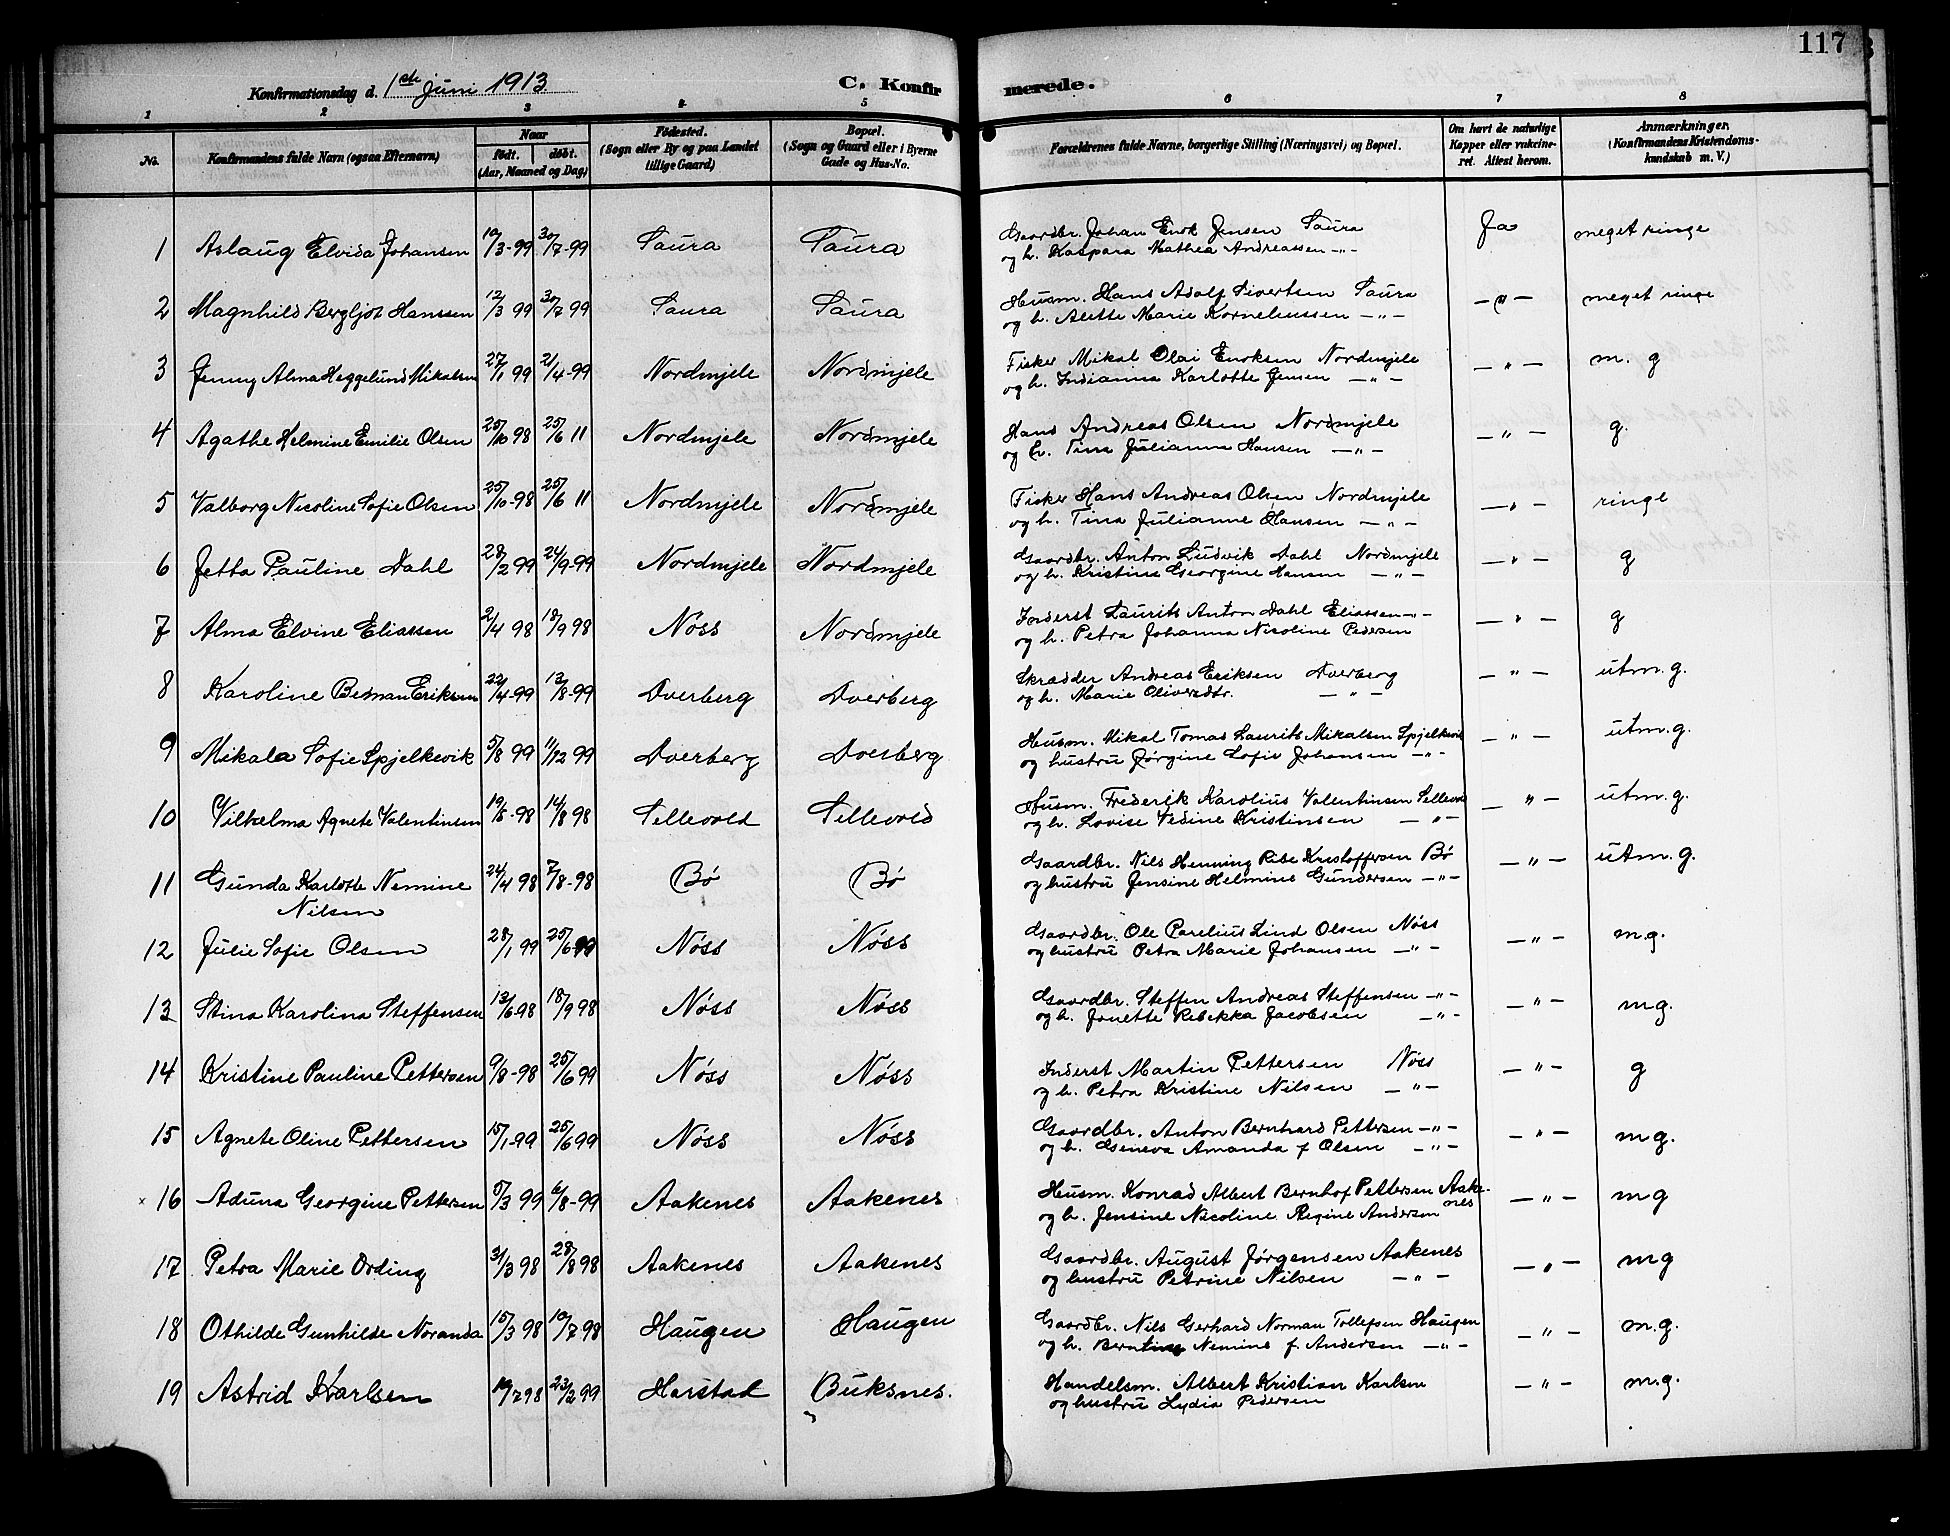 117
Konfirmationsdag d. 1ste Juni 1913
C. Konfirmerede.
1 2 3 4 5 6 7 8
No. Konfirmandens fulde Navn (ogsaa Efternavn) Naar født. døbt. (Aar, Maaned og Dag) Fødested. (Sogn eller By og paa Landet tillige Gaard) Bopæl. (Sogn og Gaard eller i Byerne Gade og Hus-No. Forældrenes fulde Navne, borgerlige Stilling (Næringsvei) og Bopæl. Om havt de naturlige Kopper eller vakcineret. Attest herom. Anmærkninger. (Konfirmandens Kristendomskundskab m. V.)
1 Aslaug Elvida Johansen 10/3-99 30/7-99 Saura Saura Gaardbr. Johan Enok Jensen Saura Ja meget ringe
og h. Kaspara Mathea Andreassen -"-
2 Magnhild Bergljot Hanssen 12/3 99 30/7 99 Saura Saura Husm. Hans Adolf Sivertsen Saura -"- meget ringe
og h. Alette Marie Korneliussen -"-
3 Jenny Alma Heggelund Mikalsen 27/1 99 2/4-99 Nordmjele Nordmjele Fisker Mikal Olai Enoksen Nordmjele -"- m. g
og h. Indianna Karlotte Jensen -"-
4 Agathe Helmine Emilie Olsen 25/10 98 25/6 11 Nordmjele Nordmjele Hans Andreas Olsen Nordmjele -"- g.
og h. Tina Julianna Hansen -"-
5 Valborg Nicoline Sofie Olsen 25/10-98 25/6 11 Nordmjele Nordmjele Fisker Hans Andreas Olsen Nordmjele -"- ringe
og h. Tina Julianne Hansen -"-
6 Jetta Pauline Dahl 28/2 99 24/9-99 Nordmjele Nordmjele Gaardbr. Anton Ludvik Dahl Nordmjele -"- g
og h. Kristine Georgine Hansen -"-
7 Alma Elvine Eliassen 2/4 98 18/9 98 Nöss Nordmjele Inderst Laurits Anton Dahl Eliassen -"- -"- g
og h. Petra Johanna Nicoline Pedersen
8 Karoline Beman Eriksen 22/4-99 13/8-99 Dverberg Dverberg Skrædder Andreas Eriksen Dverberg -"- utm. g.
og h. Marie Oliversdtr. -"-
9 Mikala Sofie Spjelkevik 5/8 99 11/12 99 Dverberg Dverberg Husm. Mikal Tomas Laurits Mikalsen Spjelkevik -"- utm. g.
og hustru Jørgine Sofie Johansen -"-
10 Vilhelma Agnete Valentinsen 19/5-98 14/8 98 Sellevold Sellevold Husm. Frederik Karolius Valentinsen Sellevold -"- utm. g.
og h. Lovise Vedine Kristinsen -"-
11 Gunda Karlotte Nemine 24/4 98 7/8-98 Bö Bö Gaardbr. Nils Henning Ribe Kristoffersen Bö -"- utm. g.
Nilsen og hustru Jensine Helmine Gundersen -"-
12 Julie Sofie Olsen 28/1 99 25/6 99 Nöss Nöss Gaardbr. Ole Parelius Lind Olsen Nöss -"- m.g.
og hustru Petra Marie Johansen -"-
13 Stina Karolina Steffensen 13/6-98 18/9 98 Nöss Nöss Gaardbr. Steffen Andreas Steffensen -"- -"- mg.
og h. Jonette Rebekka Jacobsen -"-
14 Kristine Pauline Pettersen 9/8-98 25/6 99 Nöss Nöss Inderst Martin Pettersen Nöss -"- g
og h. Petra Kristine Nilsen -"-
15 Agnete Oline Pettersen 15/1-99 25/6 99 Nöss Nöss Gaardbr. Anton Bernhard Pettersen -"- -"- mg.
og h. Geneva Amanda f Olsen -"-
x 16 Aduna Georgine Pettersen 5/3 99 6/8-99 Aakenes Aakenes Husm. Konrad Albert Bernhof Pettersen Aakenes -"- mg
og h. Jensine Nicoline Regine Andersen
17 Petra Marie Ording 3/3 98 28/8 98 Aakenes Aakenes Gaardbr. August Jørgensen Aakenes -"- mg
og hustru Petrine Nilsen -"-
18 Othilde Gunhilde Noranda 15/3 98 10/7-98 Haugen Haugen Gaardbr. Nils Gerhard Norman Tollefsen Haugen -"- m.g.
og h. Berntine Nemine f. Andersen -"-
19 Astrid Karlsen 19/7 98 23/2 99 Harstad Buksnes. Handelsm. Albert Kristian Karlsen -"- m.g.
og hustru Lydia Pedersen